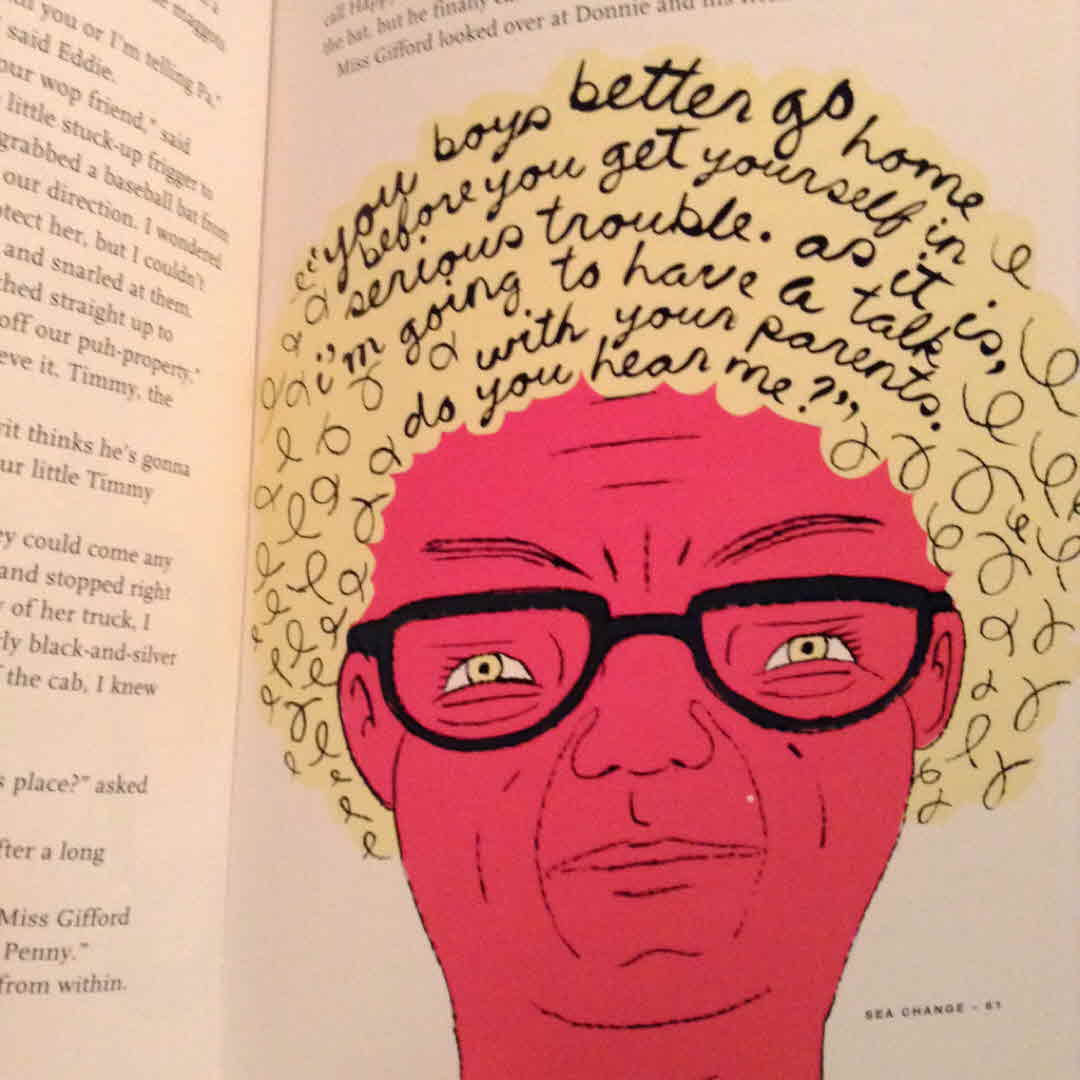 you or I'm telling Pa,"
said Eddie.
our wop friend," said
little stuck-up frigger to
grabbed a baseball bat from
our direction. I wondered
her, but I couldn't
and snarled at them.
straight up to
off our puh-property."
it, Timmy, the
thinks he's gonna
little Timmy
could come any
and stopped right
of her truck, I
black-and-silver
the cab, I knew
place?" asked
a long
Miss Gifford
Penny."
from within.
call
the bat, but he finally
Miss Gifford looked over at Donnie and his
"you boys better go home
before you get yourself in
serious trouble. as it is,
i'm going to have a talk
with your parents.
do you hear me?"
SEA CHANGE - 61